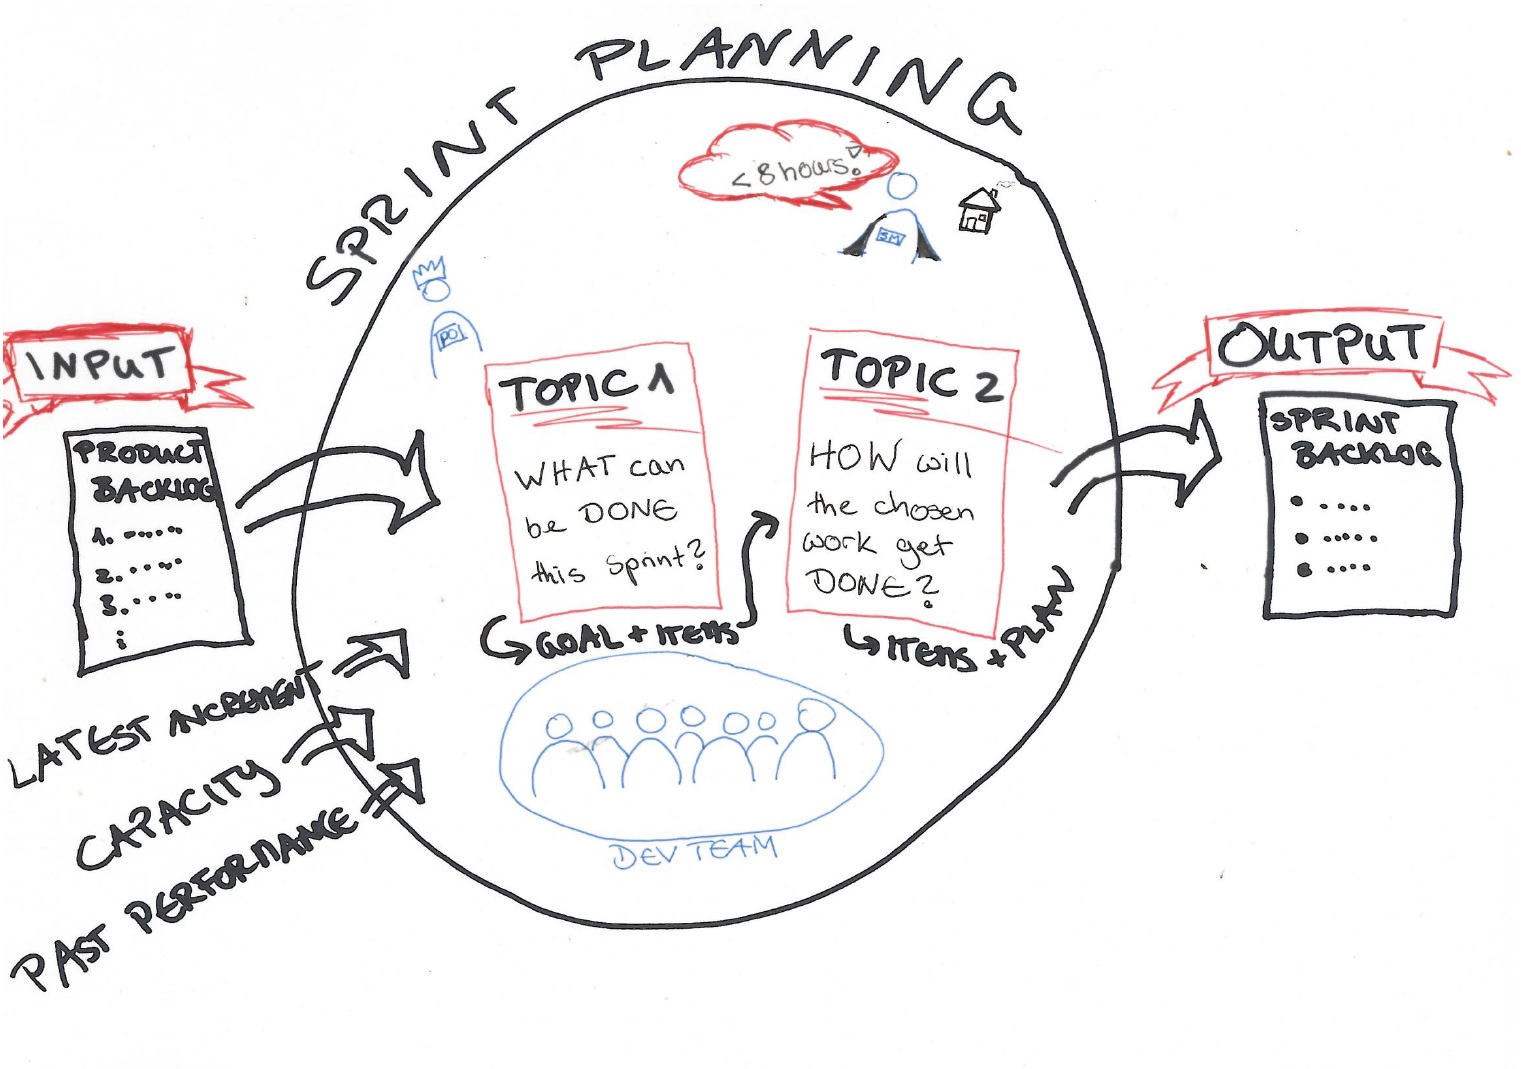 SPRINT PLANNING
< 8 hours!
SM
PO
INPUT
PRODUCT
BACKLOG
1. ......
2. .....
3. .....
LATEST INCREMENT
CAPACITY
PAST PERFORMANCE
TOPIC 1
WHAT can
be DONE
this sprint?
GOAL + ITEMS
TOPIC 2
HOW will
the chosen
work get
DONE?
ITEMS + PLAN
DEV TEAM
OUTPUT
SPRINT
BACKLOG
• ....
• .....
• ....